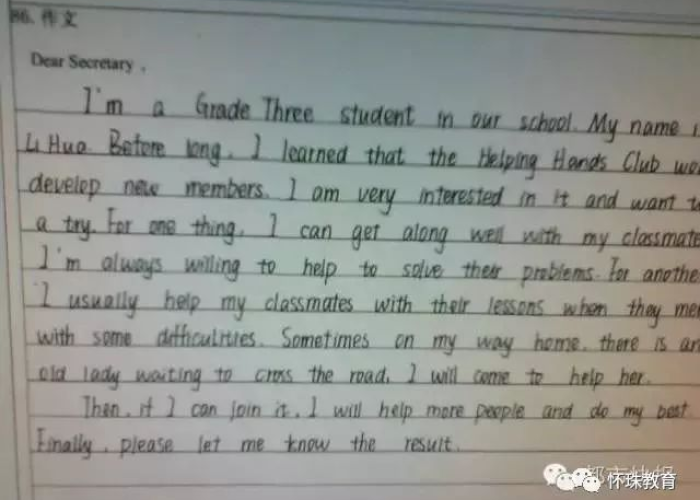 86. 作文
Dear Secretary,
I'm a Grade Three student in our school. My name i
Li Hua. Before long, I learned that the Helping Hands Club wo
develop new members. I am very interested in it and want t
a try. For one thing, I can get along well with my classmate
I'm always willing to help to solve their problems. For anothe
I usually help my classmates with their lessons when they me
with some difficulities. Sometimes on my way home, there is an
old lady waiting to cross the road, I will come to help her.
Then, if I can join it, I will help more people and do my best.
Finally, please let me know the result.
怀珠教育